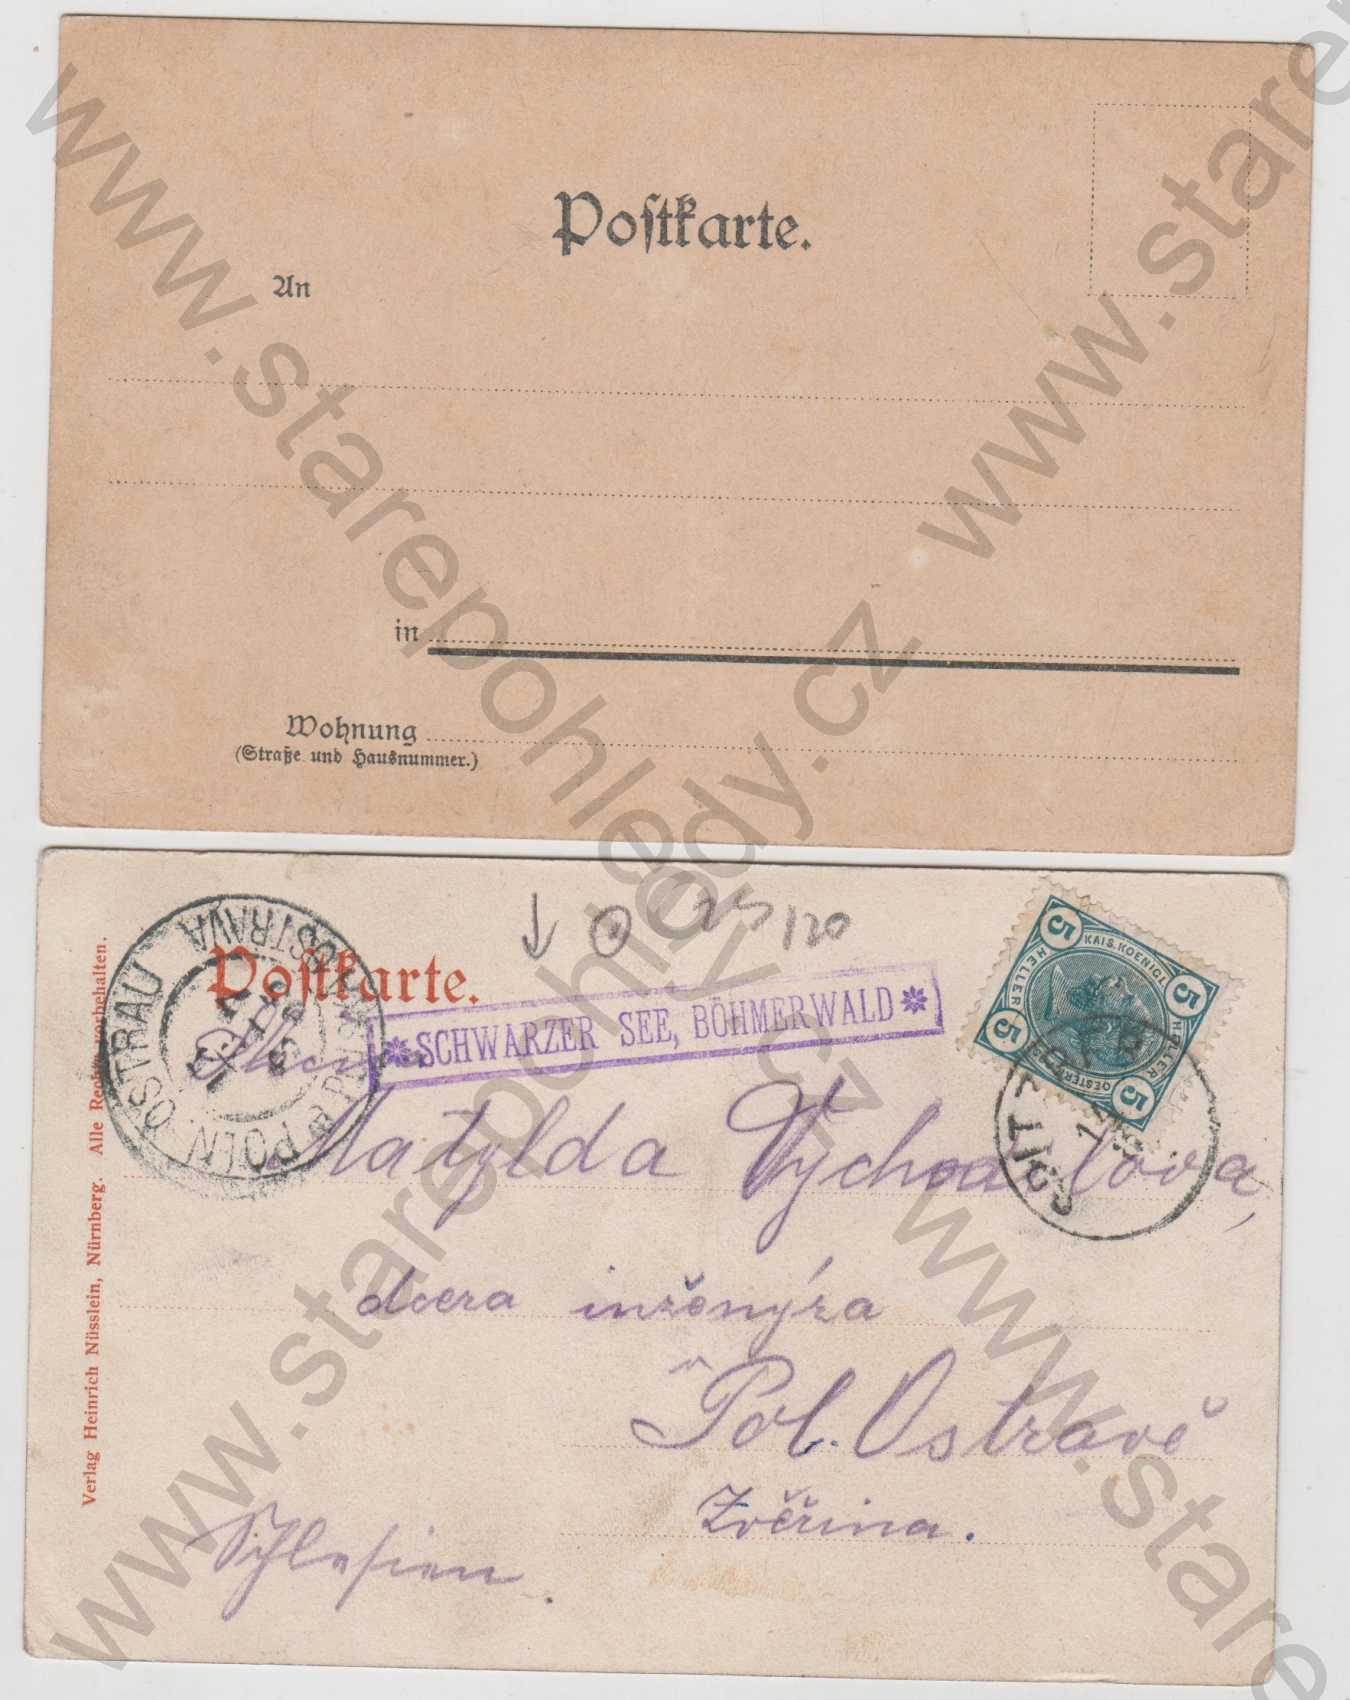 Postkarte.
An
in
Wohnung
(Straße und Hausnummer.)
www.starepohledy.cz
Verlag Heinrich Nüsslein, Nürnberg. Alle Rechte vorbehalten.
Postkarte.
POLN. OSTRAU
OSTRAVA
25/20
*SCHWARZER SEE, BÖHMERWALD*
KAIS. KOENIGL.
5 HELLER 5
5 HELLER 5
Matylda Vychodilova,
dcera inženýra
Pol. Ostravě
Zvěřina.
Schlesien.